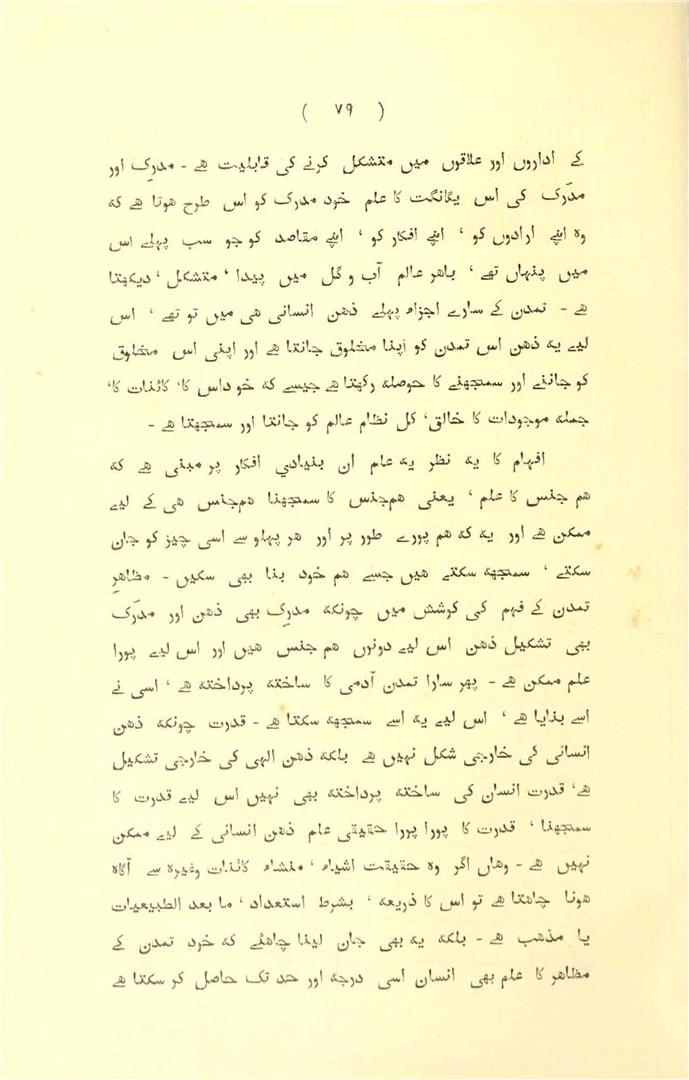 ( ٧٩ )
کے اداروں اور علاقوں میں متشکل کرنے کی قابلیت ھے - مدرِک اور
مدرَک کی اس یگانگت کا علم خود مدرک کو اس طرح ھوتا ھے کہ
وہ اپنے ارادوں کو ، اپنے افکار کو ، اپنے مقاصد کو جو سب پہلے اس
میں پنہاں تھے ، باھر عالم آب و گل میں پیدا ، متشکل ، دیکھتا
ھے - تمدن کے سارے اجزاء پہلے ذھن انسانی ھی میں تو تھے ، اس
لیے یہ ذھن اس تمدن کو اپنا مخلوق جانتا ھے اور اپنی اس مخلوق
کو جاننے اور سمجھنے کا حوصلہ رکھتا ھے جیسے کہ خود اس کا، کائنات کا،
جملہ موجودات کا خالق، کل نظام عالم کو جانتا اور سمجھتا ھے -
افہام کا یہ نظر یہ علم ان بنیادی افکار پر مبنی ھے کہ
ھم جنس کا علم ، یعنی ھمجنس کا سمجھنا ھمجنس ھی کے لیے
ممکن ھے اور یہ کہ ھم پورے طور پر اور ھر پہلو سے اسی چیز کو جان
سکتے ، سمجھہ سکتے ھیں جسے ھم خود بنا بھی سکیں - مظاھرِ
تمدن کے فہم کی کوشش میں چونکہ مدرِک بھی ذھن اور مدرَک
بھی تشکیل ذھن اس لیے دونوں ھم جنس ھیں اور اس لیے پورا
علم ممکن ھے - پھر سارا تمدن آدمی کا ساختہ پرداختہ ھے ، اسی نے
اسے بنایا ھے ، اس لیے یہ اسے سمجھہ سکتا ھے - قدرت چونکہ ذھن
انسانی کی خارجی شکل نہیں ھے بلکہ ذھن الہی کی خارجی تشکیل
ھے، قدرت انسان کی ساختہ پرداختہ بھی نہیں اس لیے قدرت کا
سمجھنا ، قدرت کا پورا پورا حقیقی علم ذھن انسانی کے لیے ممکن
نہیں ھے - وھاں اگر وہ حقیقت اشیاء ، منشاء کائنات وغیرہ سے آگاہ
ھونا چاھتا ھے تو اس کا ذریعہ ، بشرط استعداد ، ما بعد الطبیعیات
یا مذھب ھے - بلکہ یہ بھی جان لینا چاھئے کہ خود تمدن کے
مظاھر کا علم بھی انسان اسی درجہ اور حد تک حاصل کر سکتا ھے